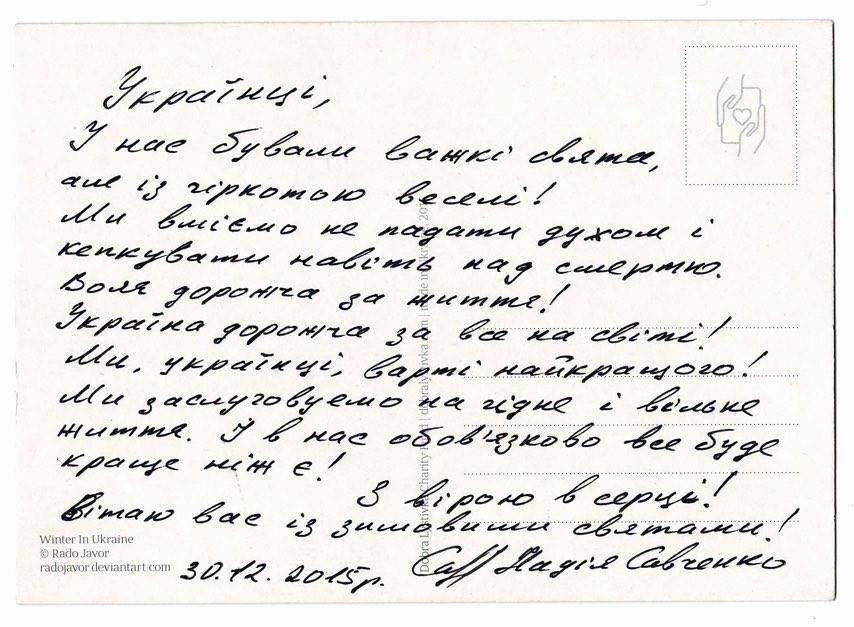 Українці,
У нас бували важкі свята,
але із гіркотою веселі!
Ми вміємо не падати духом і
кепкувати навіть над смертю.
Воля дорожча за життя!
Україна дорожча за все на світі!
Ми, українці, варті найкращого!
Ми заслуговуємо на гідне і вільне
життя. І в нас обов'язково все буде
краще ніж є!
З вірою в серці!
Вітаю вас із зимовими святами!
30.12.2015р. Надія Савченко
Winter In Ukraine
© Rado Javor
radojavor.deviantart.com